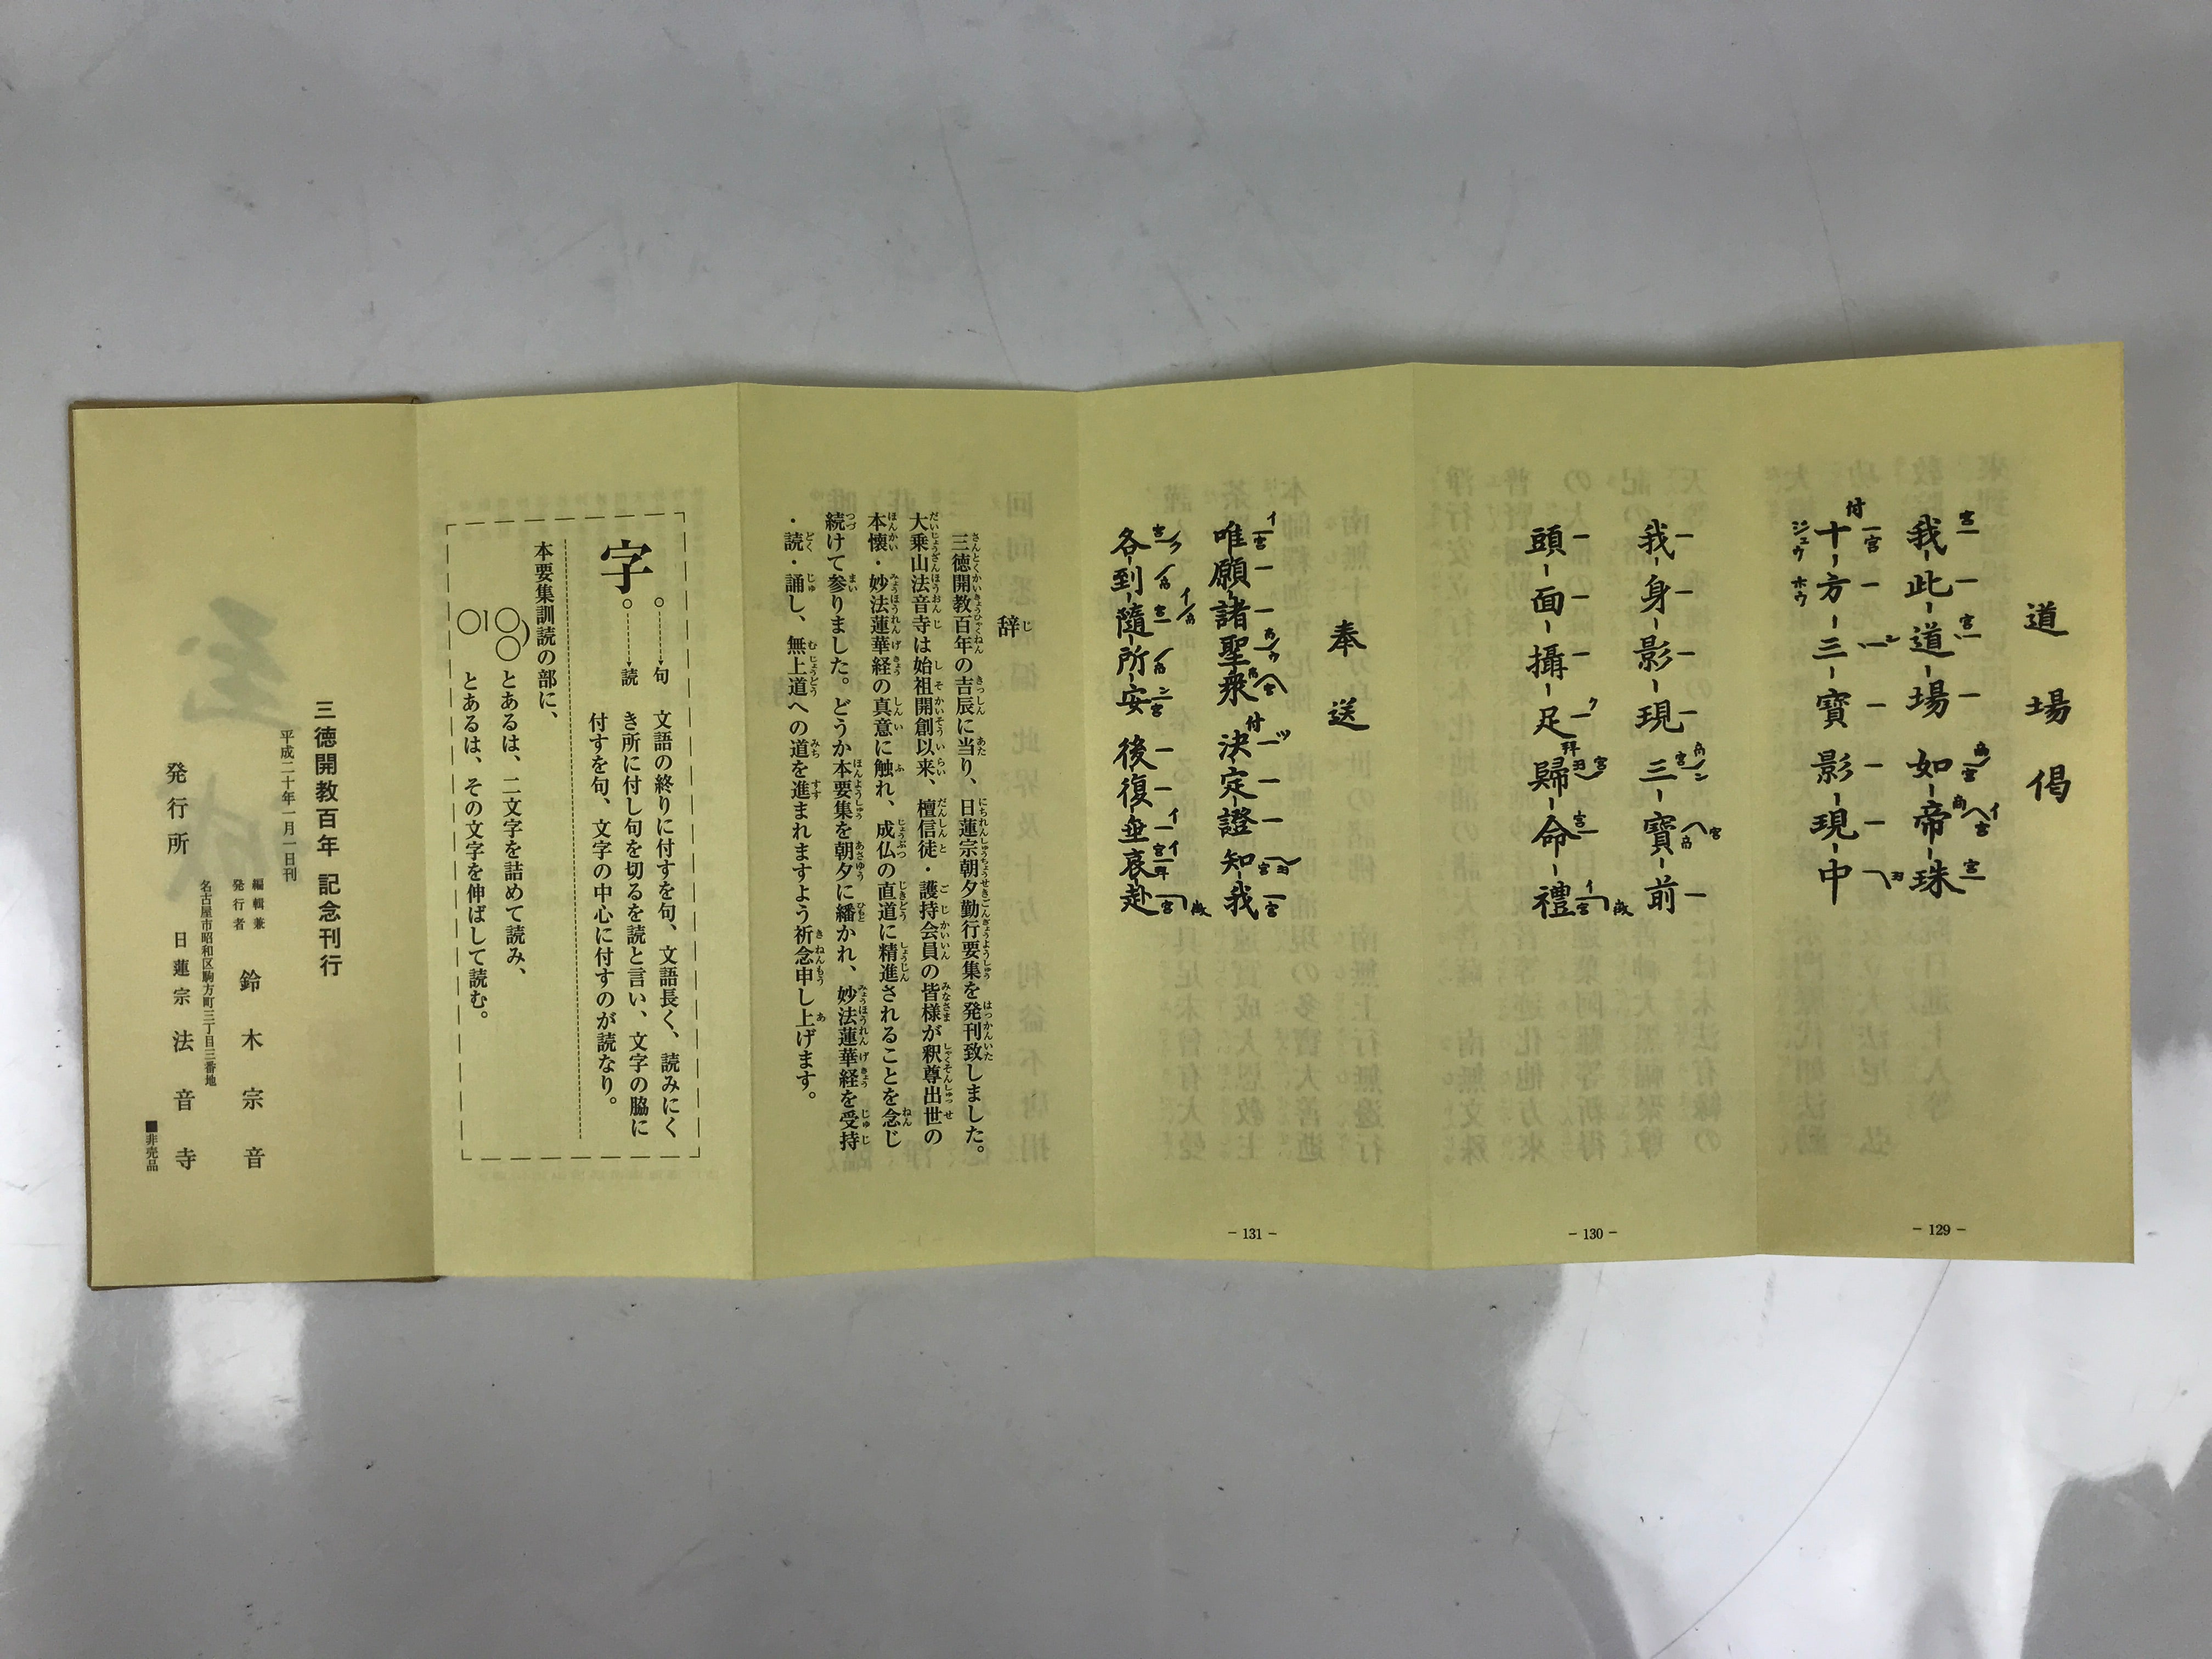 道場偈
我此道場如帝珠
十方三寶影現中
ジュウ ホウ
- 129 -
我身影現三寶前
頭面攝足歸命禮
- 130 -
奉送
唯願諸聖衆決定證知我
各到隨所安後復垂哀赴
- 131 -
辞
三徳開教百年の吉辰に当り、日蓮宗朝夕勤行要集を発刊致しました。
大乗山法音寺は始祖開創以来、檀信徒・護持会員の皆様が釈尊出世の
本懐・妙法蓮華経の真意に触れ、成仏の直道に精進されることを念じ
続けて参りました。どうか本要集を朝夕に繙かれ、妙法蓮華経を受持
・読・誦し、無上道への道を進まれますよう祈念申し上げます。
字
句 文語の終りに付すを句、文語長く、読みにく
読 き所に付し句を切るを読と言い、文字の脇に
付すを句、文字の中心に付すのが読なり。
本要集訓読の部に、
○○ とあるは、二文字を詰めて読み、
○ とあるは、その文字を伸ばして読む。
三徳開教百年 記念刊行
平成二十年一月一日刊
編輯兼
発行者 鈴木宗音
名古屋市昭和区駒方町三丁目三番地
発行所 日蓮宗 法音寺
■非売品